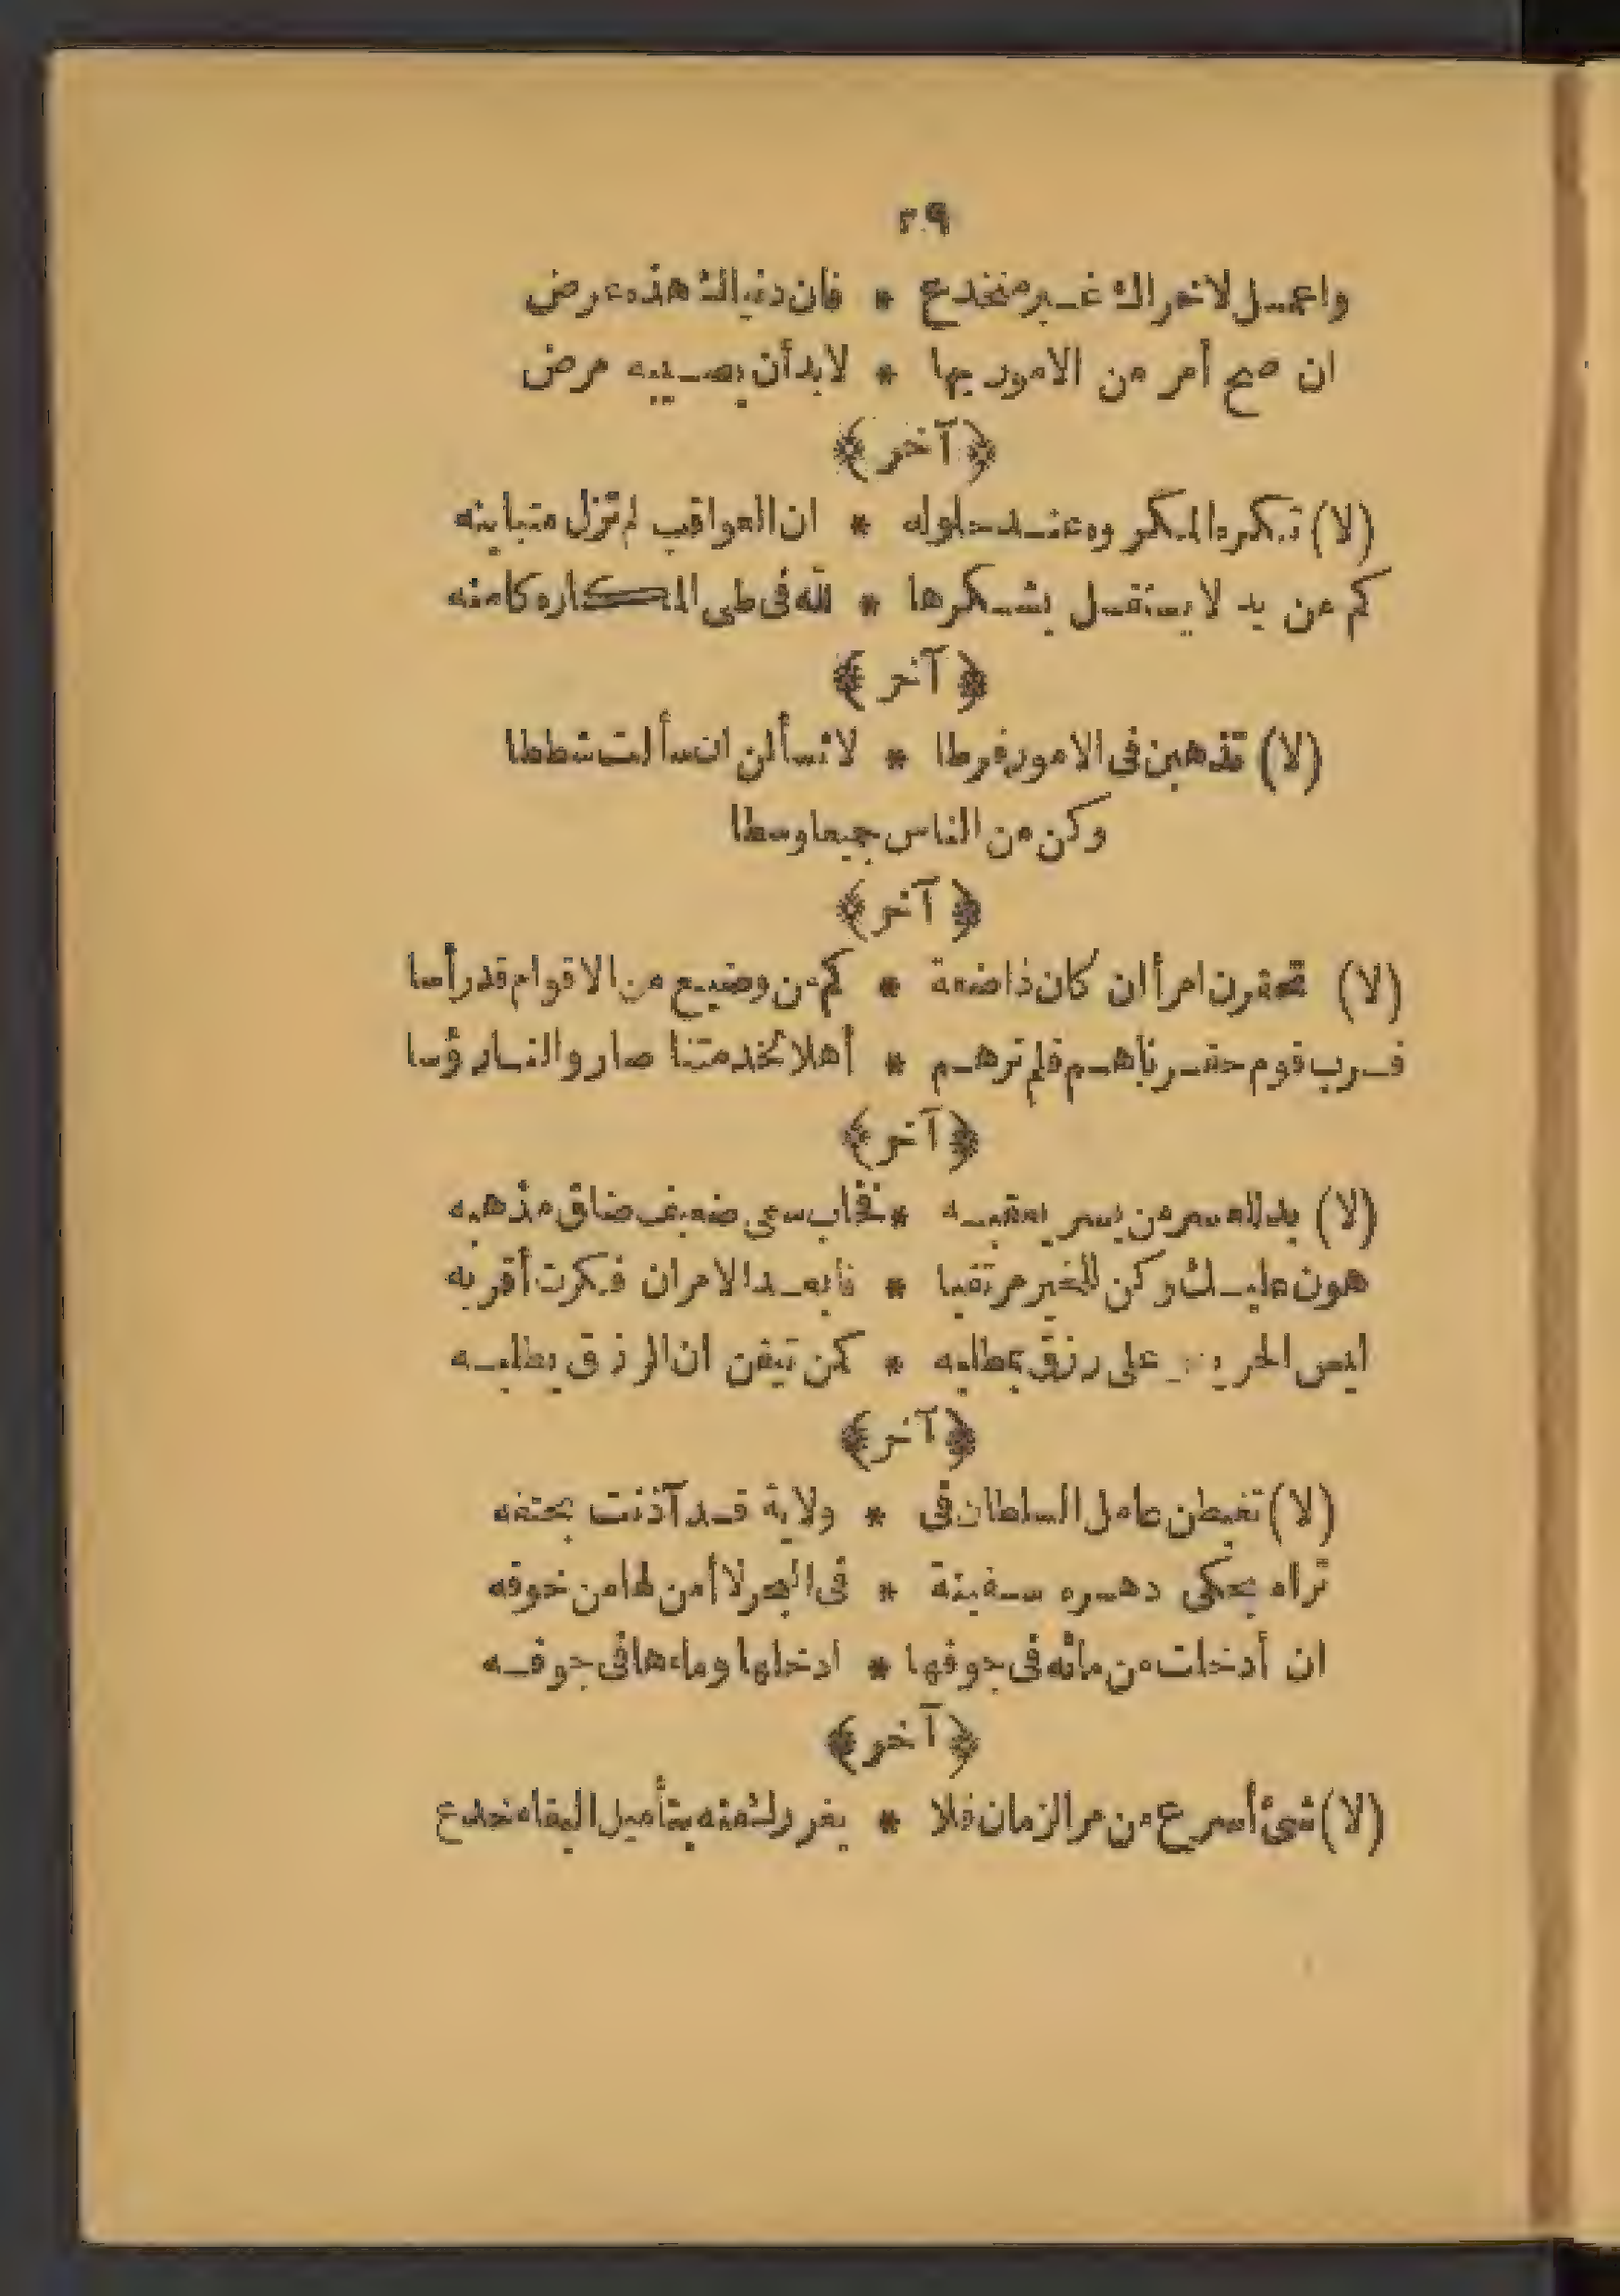 ٢٩
واعمل لاخراك غير منخدع * فان دنياك هذه عرض
ان صح أمر من الامور بها * لابد أن يصيبه مرض
﴿آخر﴾
(لا) تكره المكروه عند حلوله * ان العواقب لم تزل متباينه
كم من يد لا يستقل بشكرها * لله فى طى المكاره كامنه
﴿آخر﴾
(لا) تذهبن فى الامور فرطا * لا تسألن ان سألت شططا
وكن من الناس جميعا وسطا
﴿آخر﴾
(لا) تحقرن امرأ ان كان ذا ضعة * كم من وضيع من الاقوام قد رأسا
فرب قوم حقرناهم فلم نرهم * أهلا لخدمتنا صاروا لنا رؤسا
﴿آخر﴾
(لا) بد للعسر من يسر يعقبه * سعى ضعيف ضاق مذهبه
هون عليك وكن للخير مرتقبا * فابعد الامران فكرت أقربه
ليس الحريص على رزق بمطلبه * كمن تيقن ان الرزق يطلبه
﴿آخر﴾
(لا) تغبطن عامل السلطان فى * ولاية قد آذنت بحتفه
تراه يحكى دهره سفينة * فى البحر لا أمن لها من خوفه
ان أدخلت من مائه فى جوفها * ادخلها وماءها فى جوفه
﴿آخر﴾
(لا) شئ أسرع من مر الزمان فلا * يغررك منه بتأميل البقاء خدع